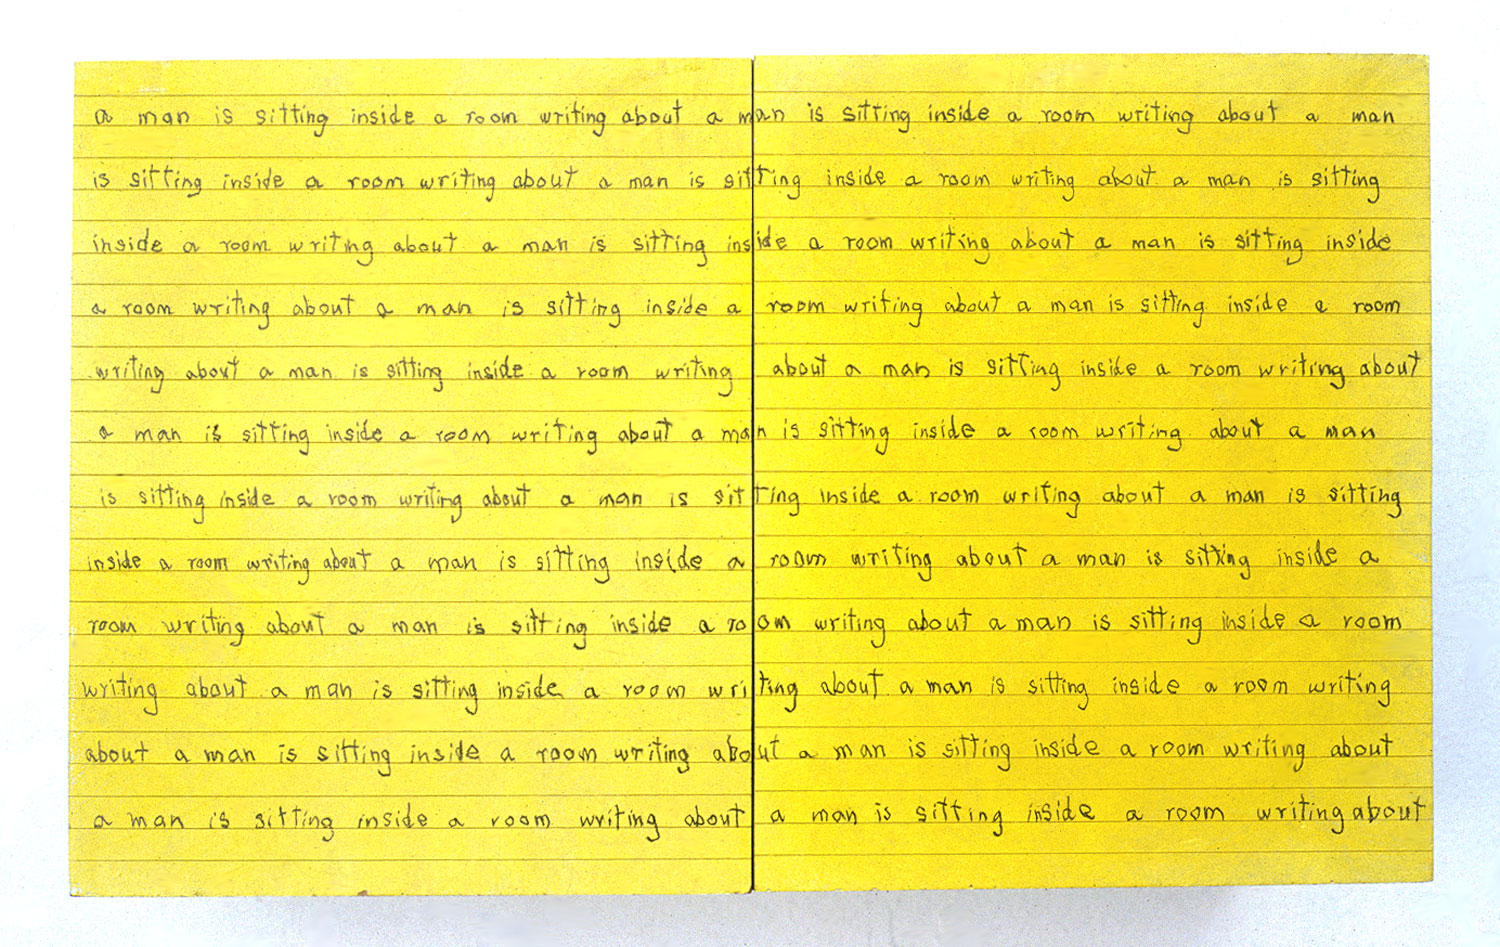 a man is sitting inside a room writing about a man is sitting inside a room writing about a man
is sitting inside a room writing about a man is sitting inside a room writing about a man is sitting
inside a room writing about a man is sitting inside a room writing about a man is sitting inside
a room writing about a man is sitting inside a room writing about a man is sitting inside a room
writing about a man is sitting inside a room writing about a man is sitting inside a room writing about
a man is sitting inside a room writing about a man is sitting inside a room writing about a man
is sitting inside a room writing about a man is sitting inside a room writing about a man is sitting
inside a room writing about a man is sitting inside a room writing about a man is sitting inside a
room writing about a man is sitting inside a room writing about a man is sitting inside a room
writing about a man is sitting inside a room writing about a man is sitting inside a room writing
about a man is sitting inside a room writing about a man is sitting inside a room writing about
a man is sitting inside a room writing about a man is sitting inside a room writing about